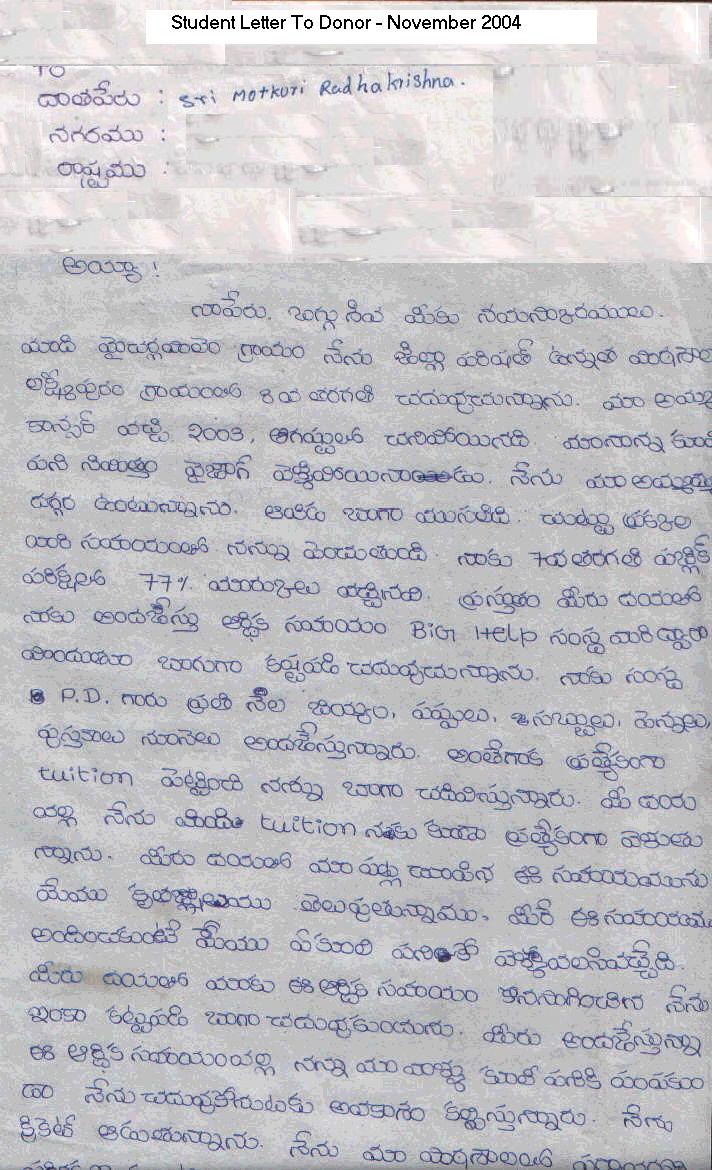 Student Letter To Donor - November 2004
TO
దాతపేరు : Sri Motkuri Radhakrishna.
నగరము :
రాష్ట్రము :
అయ్యా !
నాపేరు. బగ్గు శివ మీకు నమస్కారములు.
మాది గ్రామం నేను జిల్లా పరిషత్ ఉన్నత పాఠశాల
లక్ష్మీపురం గ్రామంలో 8వ తరగతి చదువుచున్నాను. మా అమ్మ
కాన్సర్ వచ్చి 2003, ఆగష్టులో చనిపోయినది మానాన్న కూలి
పని నిమిత్తం వైజాగ్ వెళ్ళిపోయినాడు. నేను మా అమ్మమ్మ
దగ్గర ఉంటున్నాను. ఆమె బాగా ముసలిది. చుట్టు ప్రక్కల
వారి సహాయంతో నన్ను పెంచుతుంది. నాకు 7వ తరగతి పబ్లిక్
పరీక్షలో 77% మార్కులు వచ్చినవి. ప్రస్తుతం మీరు దయతో
నాకు అందజేస్తు ఆర్థిక సహాయం BIG Help సంస్థ వారి ద్వారా
పొందుతూ బాగుగా కష్టపడి చదువుచున్నాను. నాకు సంస్థ
P.D. గారు ప్రతి నెల బియ్యం, పప్పులు, సబ్బులు, పెన్నులు,
పుస్తకాలు నూనెలు అందజేస్తున్నారు. అంతేగాక ప్రత్యేకంగా
tuition పెట్టించి నన్ను బాగా చదివిస్తున్నారు. మీ దయ
వల్ల నేను tuition నకు కూడా ప్రత్యేకంగా వెళుతు
న్నాను. మీరు దయతో మా పట్ల చూపిన ఈ సహాయమును
మేము కృతజ్ఞులము తెలుపుతున్నాము. మీరే ఈ సహాయం
అందించకుంటే మేము ఏ కూలి పనికో వెళ్ళవలసివచ్చేది.
మీరు దయతో మాకు ఈ ఆర్థిక సహాయం కొనసాగించిన నేను
ఇంకా కష్టపడి బాగా చదువుకుంటాను. మీరు అందజేస్తున్న
ఈ ఆర్థిక సహాయంవల్ల నన్ను మా వాళ్ళు కూలి పనికి పంపకుం
డా నేను చదువుకోనుటకు అవకాశం కల్పిస్తున్నారు. నేను
క్రికెట్ ఆడుతున్నాను. నేను మా పాఠశాలలో